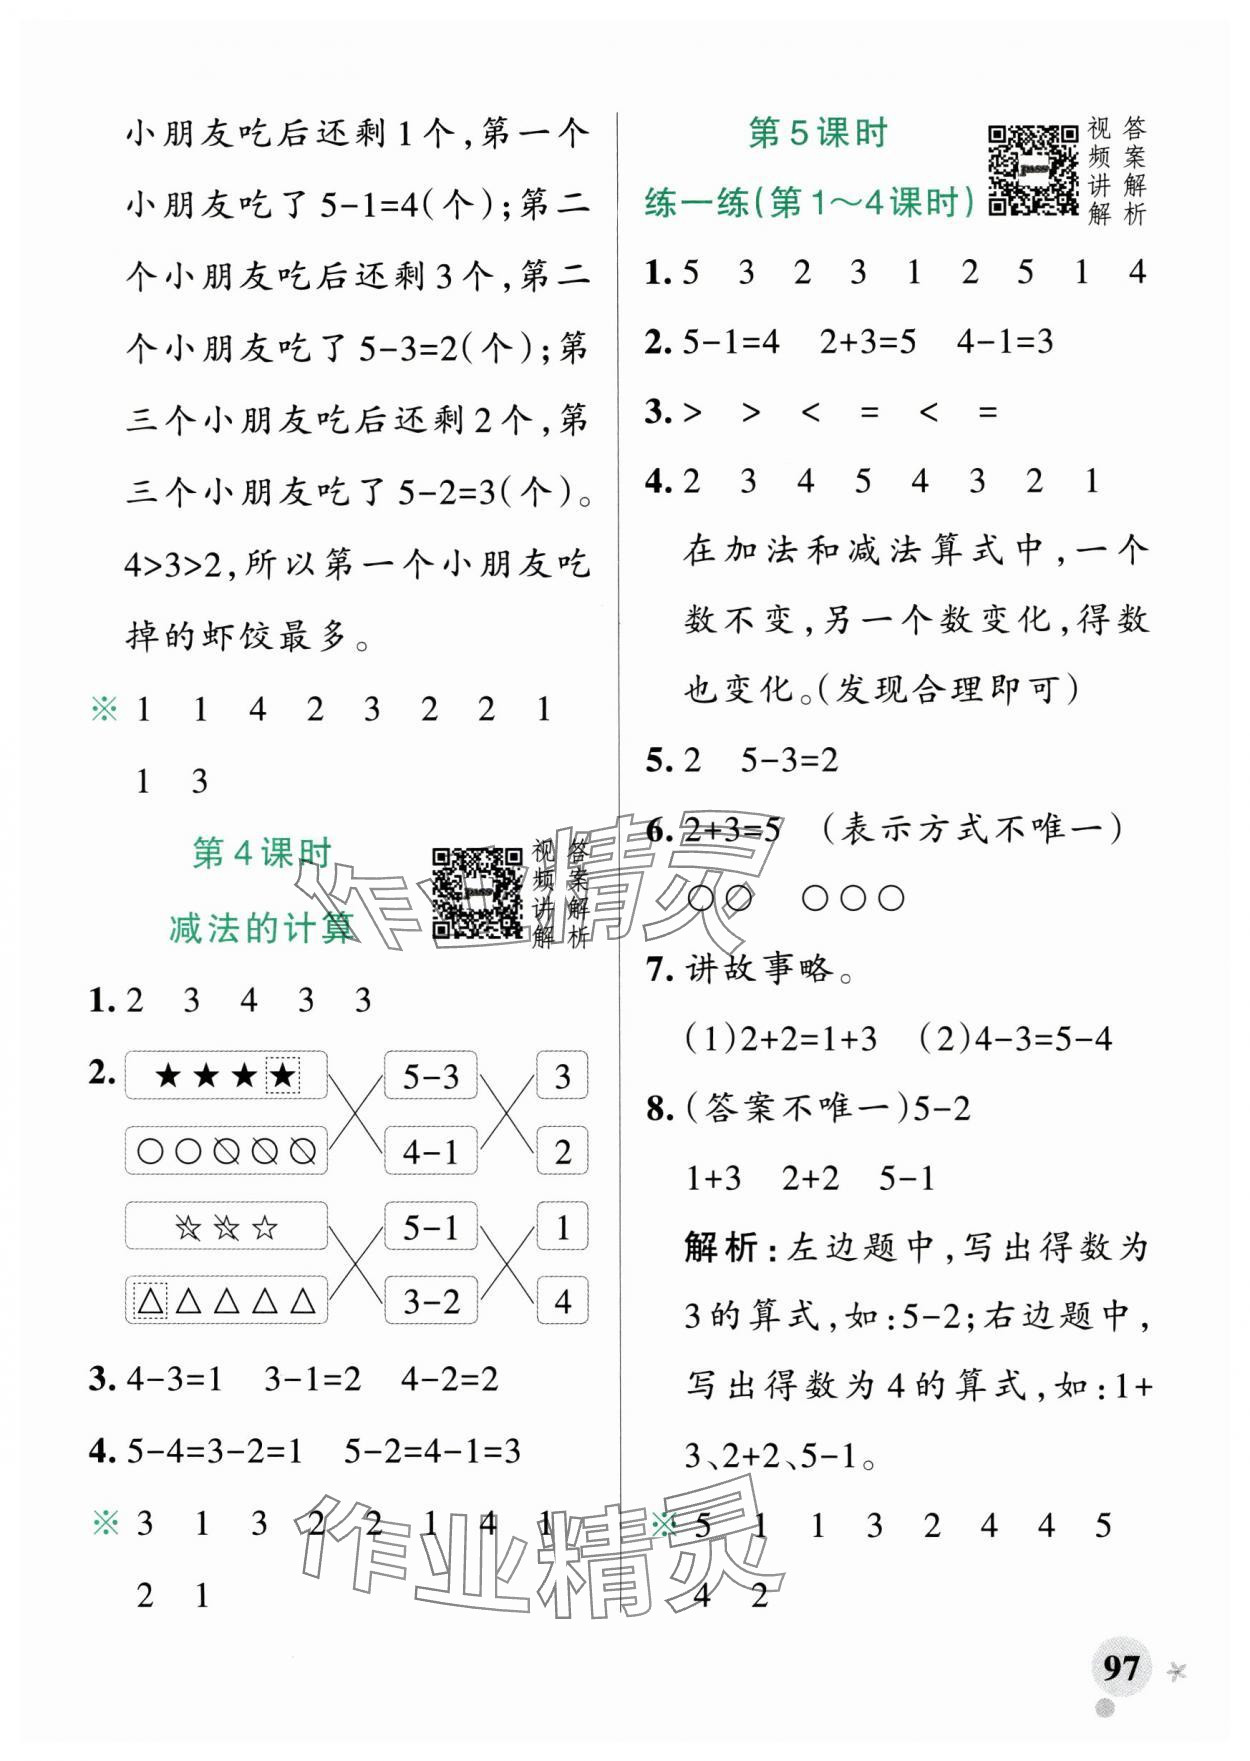 小朋友吃后还剩1个,第一个
小朋友吃了5-1=4(个);第二
个小朋友吃后还剩3个,第二
个小朋友吃了5-3=2(个);第
三个小朋友吃后还剩2个,第
三个小朋友吃了5-2=3(个)。
4>3>2,所以第一个小朋友吃
掉的虾饺最多。
※ 1 1 4 2 3 2 2 1
1 3
第4课时
减法的计算
视频讲解
答案解析
pass
1. 2 3 4 3 3
2. ★ ★ ★ ★ 5-3 3
○ ○ ○ ○ ○ 4-1 2
☆ ☆ ☆ 5-1 1
△ △ △ △ △ 3-2 4
3. 4-3=1 3-1=2 4-2=2
4. 5-4=3-2=1 5-2=4-1=3
※ 3 1 3 2 2 1 4 1
2 1
第5课时
练一练(第1～4课时)
视频讲解
答案解析
pass
1. 5 3 2 3 1 2 5 1 4
2. 5-1=4 2+3=5 4-1=3
3. > > < = < =
4. 2 3 4 5 4 3 2 1
在加法和减法算式中,一个
数不变,另一个数变化,得数
也变化。(发现合理即可)
5. 2 5-3=2
6. 2+3=5 (表示方式不唯一)
○○ ○○○
7. 讲故事略。
(1)2+2=1+3 (2)4-3=5-4
8. (答案不唯一)5-2
1+3 2+2 5-1
解析:左边题中,写出得数为
3的算式,如:5-2;右边题中,
写出得数为4的算式,如:1+
3、2+2、5-1。
※ 5 1 1 3 2 4 4 5
4 2
作业精灵
作业精灵
97